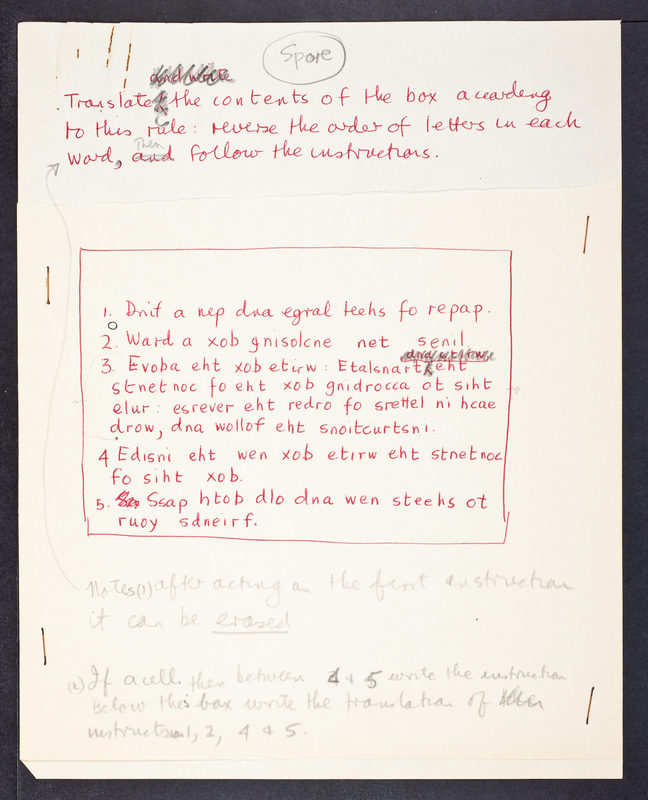 Spore
Translate the contents of the box according
to this rule: reverse the order of letters in each
word, and Then follow the instructions.
1. Dnif a nep dna egral teehs fo repap.
2. Ward a xob gnisolcne net senil
3. Evoba eht xob etirw: Etalsnart eht
stnetnoc fo eht xob gnidrocca ot siht
elur: esrever eht redro fo srettel ni hcae
drow, dna wollof eht snoitcurtsni.
4 Edisni eht wen xob etirw eht stnetnoc
fo siht xob.
5. Ssap htob dlo dna wen steehs ot
ruoy sdneirf.
Notes (1) after acting on the first instruction
it can be erased
(2) If a cell. then between 4 & 5 write the instruction
Below this box write the translation of
instructions 1, 2, 4 & 5.